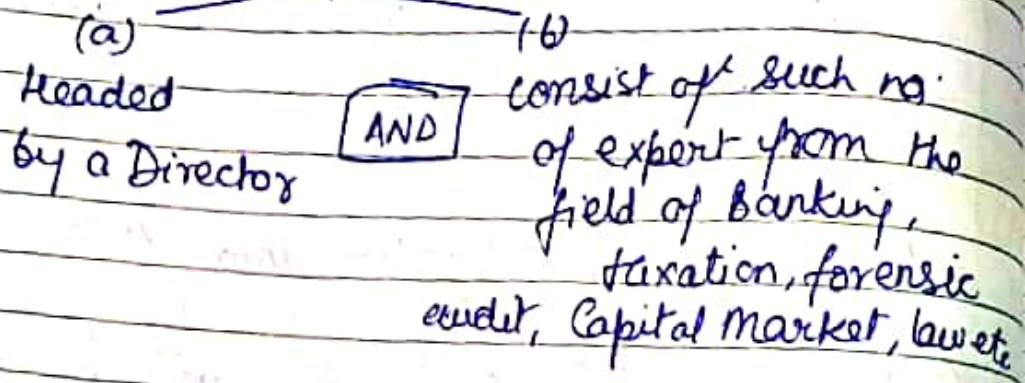 (a)
Headed
by a Director
AND
(b)
consist of such no.
of expert from the
field of Banking,
taxation, forensic
audit, Capital Market, law etc